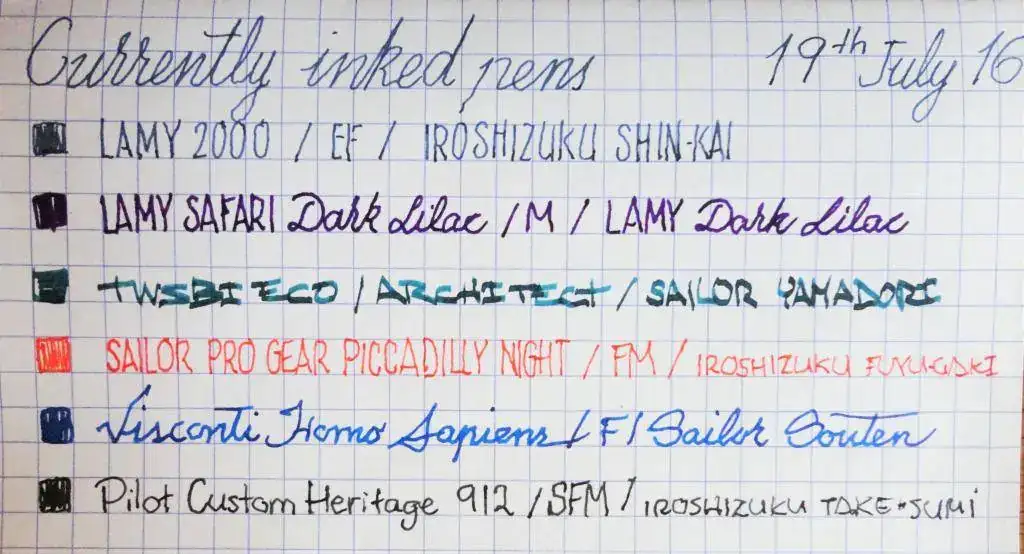 Currently inked pens 19th July 16
LAMY 2000 / EF / IROSHIZUKU SHIN-KAI
LAMY SAFARI Dark Lilac / M / LAMY Dark Lilac
TWSBI ECO / ARCHITECT / SAILOR YAMADORI
SAILOR PRO GEAR PICCADILLY NIGHT / FM / IROSHIZUKU FUYU-GAKI
Visconti Homo Sapiens / F / Sailor Souten
Pilot Custom Heritage 912 / SFM / IROSHIZUKU TAKE-SUMI